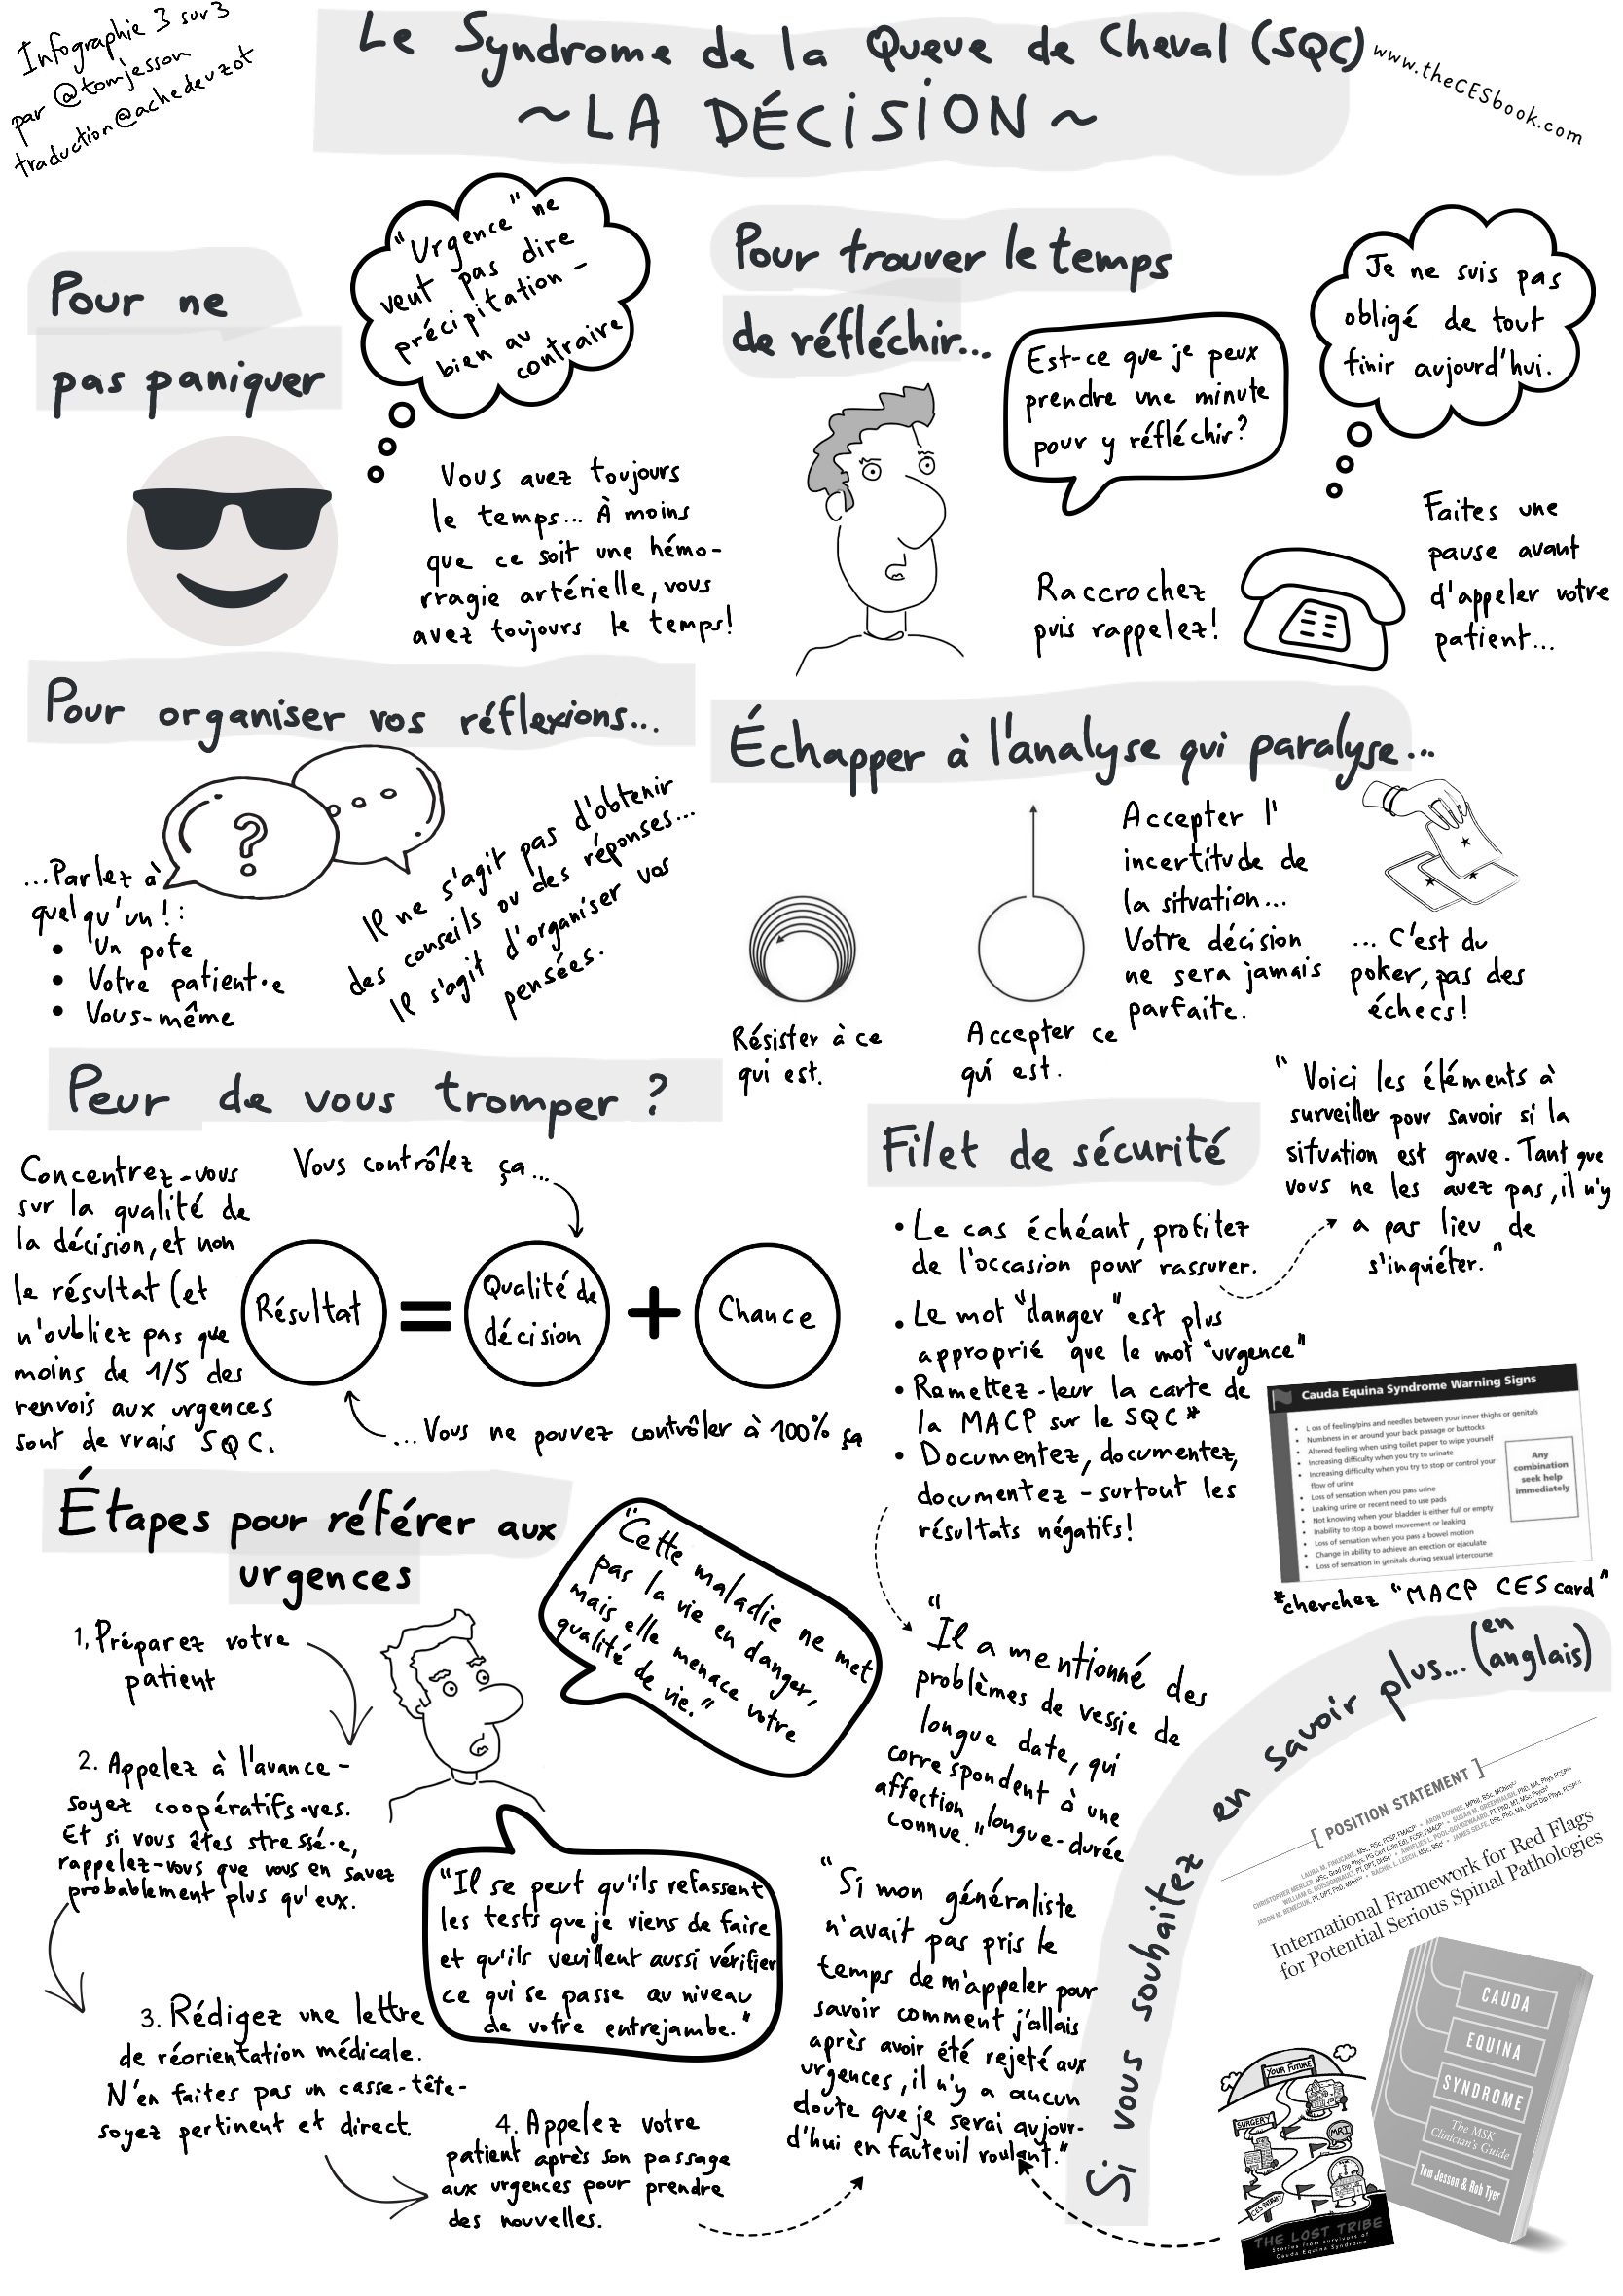 Infographie 3 sur 3
par @tomjesson
traduction @achedeuzot
Le Syndrome de la Queue de Cheval (SQC)
~ LA DÉCISION ~
www.theCESbook.com
Pour ne
pas paniquer
"Urgence" ne
veut pas dire
précipitation -
bien au
contraire
Vous avez toujours
le temps... À moins
que ce soit une hémo-
rragie artérielle, vous
avez toujours le temps!
Pour trouver le temps
de réfléchir...
Est-ce que je peux
prendre une minute
pour y réfléchir?
Je ne suis pas
obligé de tout
finir aujourd'hui.
Raccrochez
puis rappelez!
Faites une
pause avant
d'appeler votre
patient...
Pour organiser vos réflexions...
?
...Parlez à
quelqu'un! :
• Un pote
• Votre patient·e
• Vous-même
Il ne s'agit pas d'obtenir
des conseils ou des réponses...
Il s'agit d'organiser vos
pensées.
Échapper à l'analyse qui paralyse...
Résister à ce
qui est.
Accepter ce
qui est.
Accepter l'
incertitude de
la situation...
Votre décision
ne sera jamais
parfaite.
... C'est du
poker, pas des
échecs!
Peur de vous tromper ?
Concentrez-vous
sur la qualité de
la décision, et non
le résultat (et
n'oubliez pas que
moins de 1/5 des
renvois aux urgences
sont de vrais SQC.
Vous contrôlez ça...
Résultat
=
Qualité de
décision
+
Chance
...Vous ne pouvez contrôler à 100% ça
Filet de sécurité
• Le cas échéant, profitez
de l'occasion pour rassurer.
• Le mot "danger" est plus
approprié que le mot "urgence"
• Remettez-leur la carte de
la MACP sur le SQC*
• Documentez, documentez,
documentez - surtout les
résultats négatifs!
"Voici les éléments à
surveiller pour savoir si la
situation est grave. Tant que
vous ne les avez pas, il n'y
a pas lieu de
s'inquiéter."
Cauda Equina Syndrome Warning Signs
• Loss of feeling/pins and needles between your inner thighs or genitals
• Numbness in or around your back passage or buttocks
• Altered feeling when using toilet paper to wipe yourself
• Increasing difficulty when you try to urinate
• Increasing difficulty when you try to stop or control your
flow of urine
• Loss of sensation when you pass urine
• Leaking urine or recent need to use pads
• Not knowing when your bladder is either full or empty
• Inability to stop a bowel movement or leaking
• Loss of sensation when you pass a bowel motion
• Change in ability to achieve an erection or ejaculate
• Loss of sensation in genitals during sexual intercourse
Any
combination
seek help
immediately
*cherchez "MACP CES card"
Étapes pour référer aux
urgences
1. Préparez votre
patient
"Cette maladie ne met
pas la vie en danger,
mais elle menace votre
qualité de vie."
2. Appelez à l'avance -
soyez coopératifs·ves.
Et si vous êtes stressé·e,
rappelez-vous que vous en savez
probablement plus qu'eux.
"Il se peut qu'ils refassent
les tests que je viens de faire
et qu'ils veuillent aussi vérifier
ce qui se passe au niveau
de votre entrejambe."
3. Rédigez une lettre
de réorientation médicale.
N'en faites pas un casse-tête-
soyez pertinent et direct.
4. Appelez votre
patient après son passage
aux urgences pour prendre
des nouvelles.
"Il a mentionné des
problèmes de vessie de
longue date, qui
correspondent à une
affection longue-durée
connue."
"Si mon généraliste
n'avait pas pris le
temps de m'appeler pour
savoir comment j'allais
après avoir été rejeté aux
urgences, il n'y a aucun
doute que je serai aujour-
d'hui en fauteuil roulant."
Si vous souhaitez en savoir plus... (en anglais)
[ POSITION STATEMENT ]
International Framework for Red Flags
for Potential Serious Spinal Pathologies
CAUDA
EQUINA
SYNDROME
The MSK
Clinician's Guide
Tom Jesson & Rob Tyer
YOUR FUTURE
SURGERY
MRI
THE LOST TRIBE
Stories from survivors of
Cauda Equina Syndrome